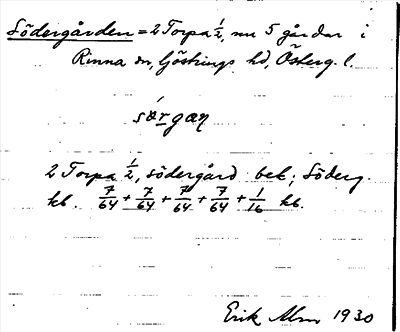 Södergården = 2 Torpa 1/2, nu 5 gårdar i
Rinna sn, Göstrings hd, Österg. l.
sǿrgaṇ
2 Torpa 1/2, södergård bet; Söderg.
kb. 7/64 + 7/64 + 7/64 + 7/64 + 1/16 kb.
Erik Alm 1930